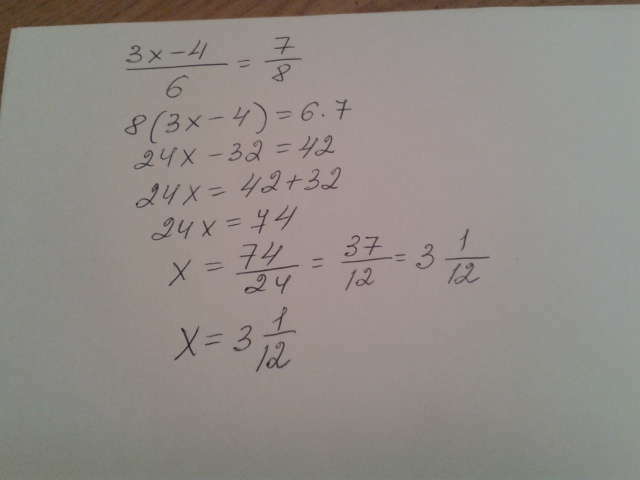 (3x-4)/6 = 7/8
8(3x-4)=6·7
24x-32=42
24x=42+32
24x=74
x = 74/24 = 37/12 = 3 1/12
x = 3 1/12